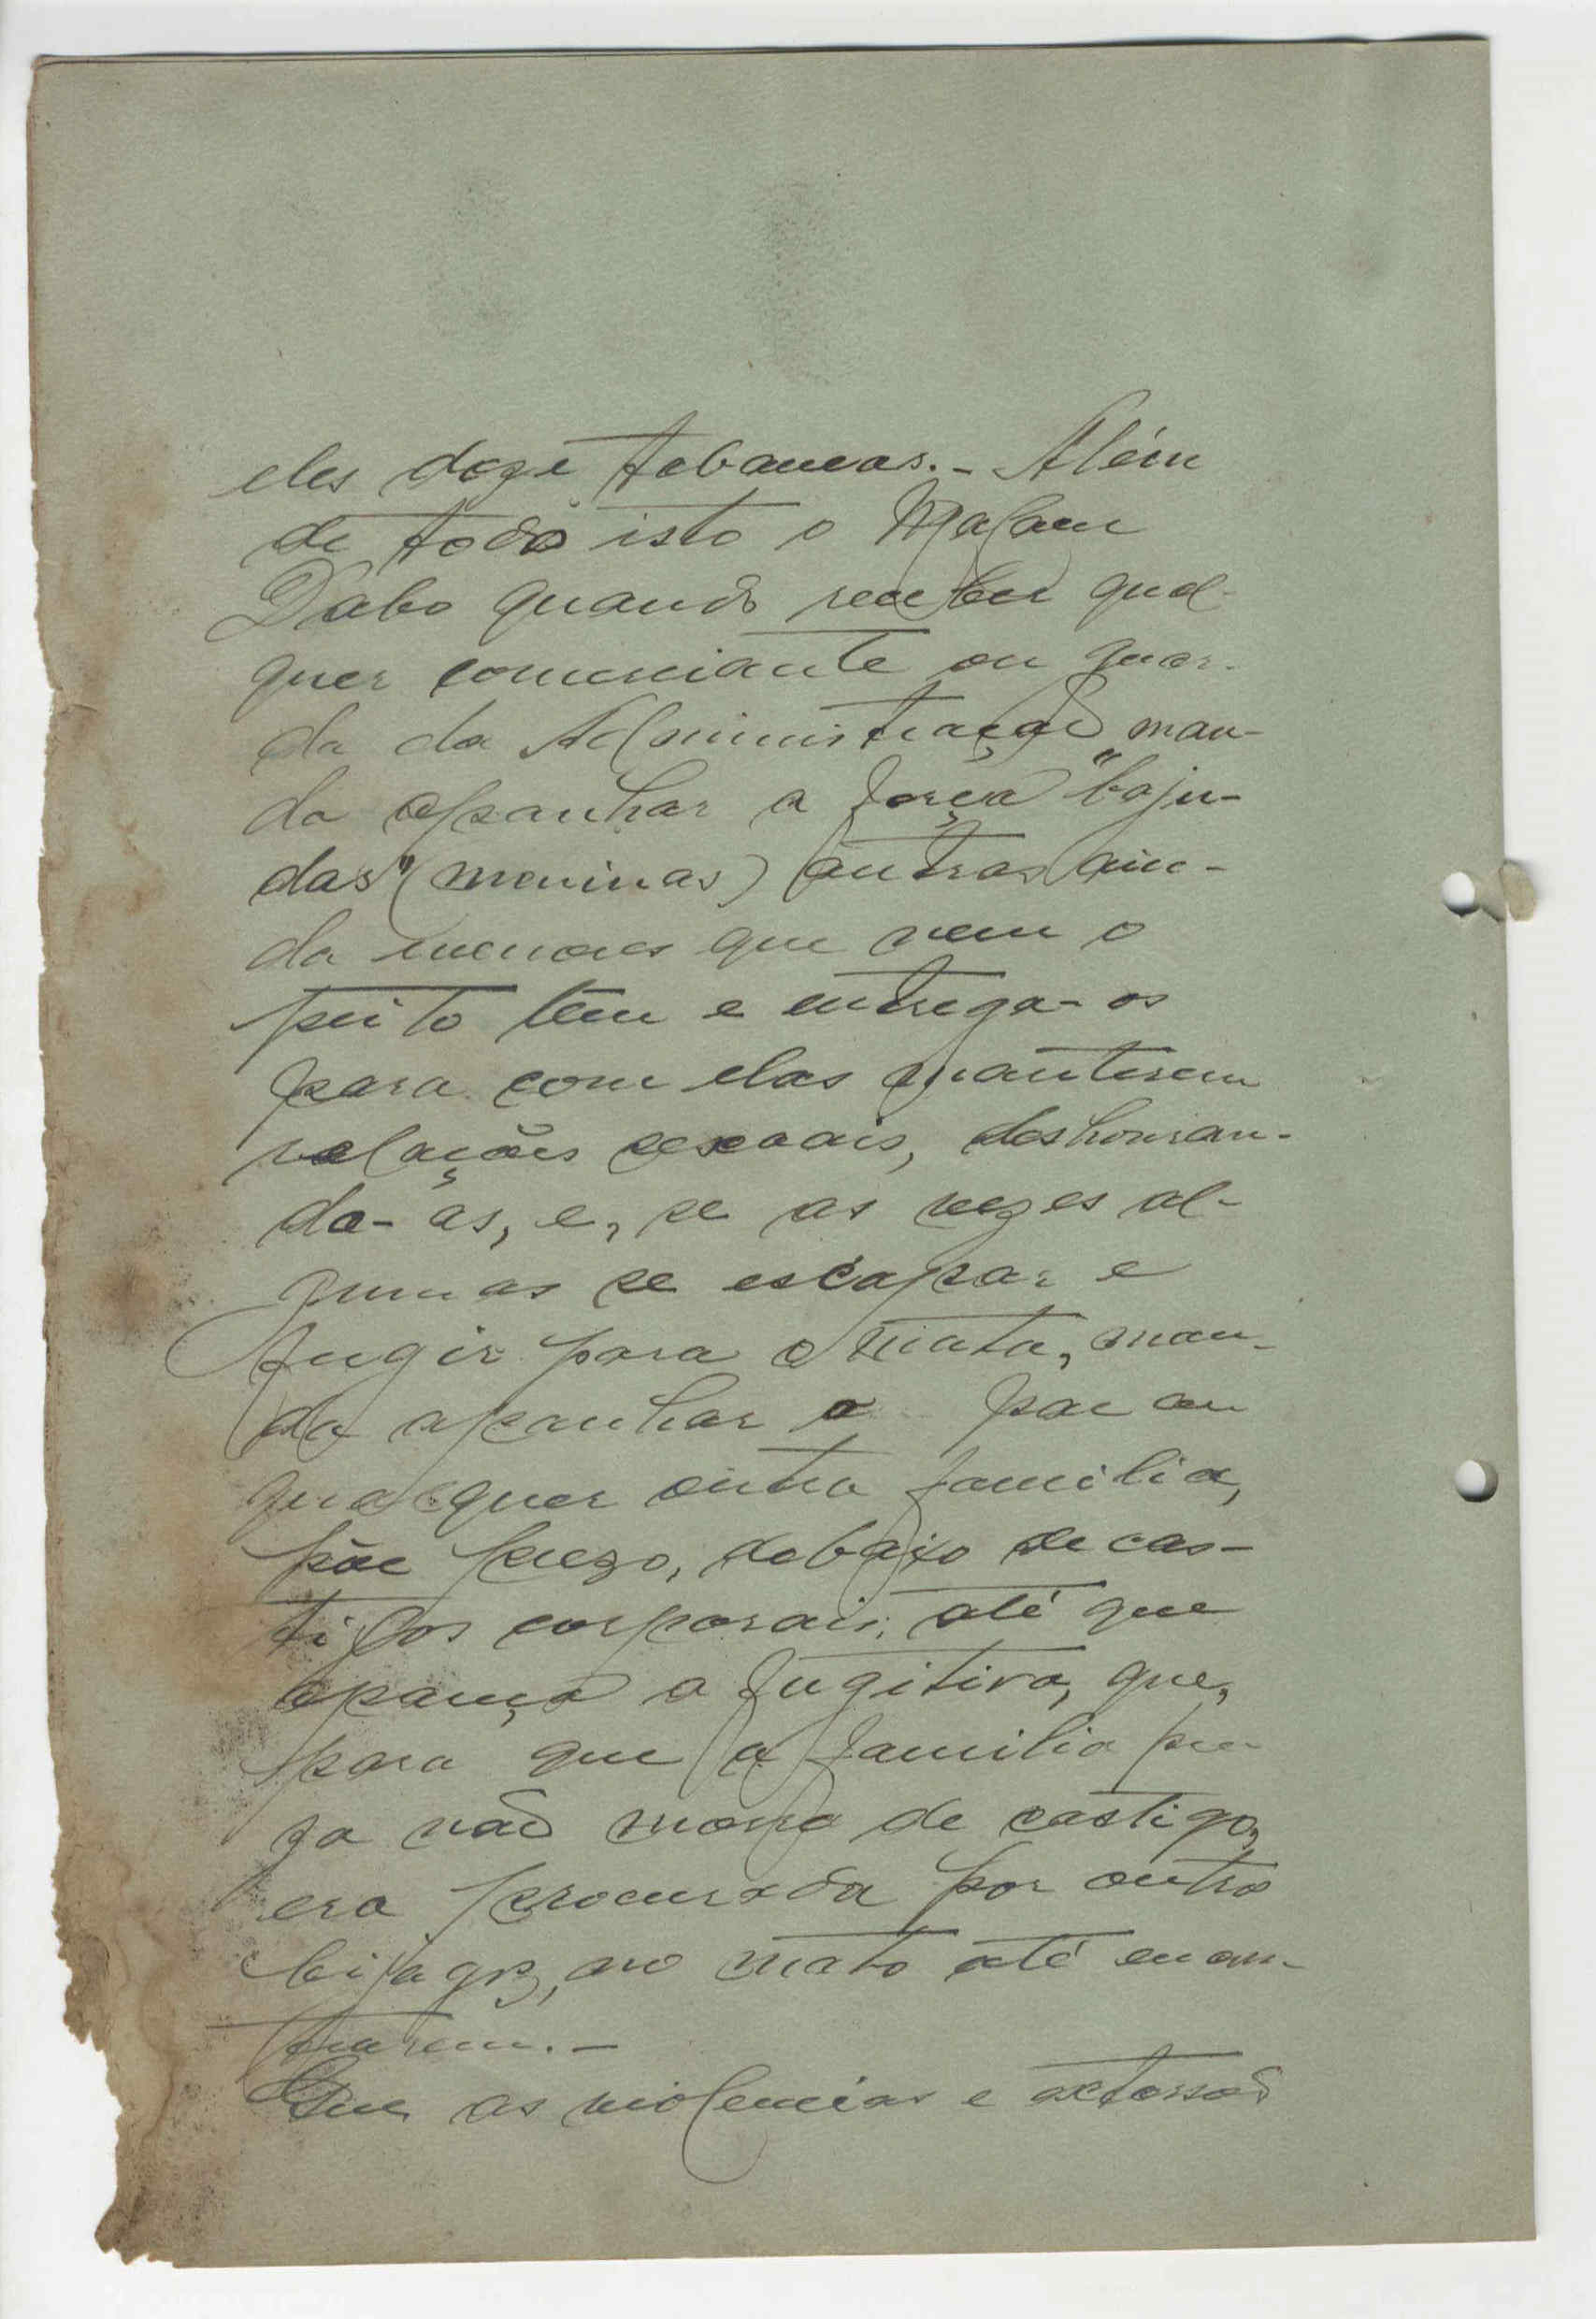 eles doze tabancas. - Além
de todo isto o Malam
Dabo quando recebeu qual-
quer comerciante ou guar-
da da Administração man-
da apanhar a força "baju-
das" (meninas) outras ain-
da menores que nem o
peito têm e entrega-os
para com elas manterem
relações sexoais, deshonran-
do-as, e, se as vezes al-
gumas se escapar e
fugir para o mato, man-
da apanhar o pae ou
qualquer outra familia,
põe prezo, debaixo de cas-
tigos corporais, até que
apareça a fugitiva, que,
para que a familia pre-
za não morra de castigo,
era procurada por outros
bijagoz, no mato até encon-
trarem. -
Que as violencias e extorsoes